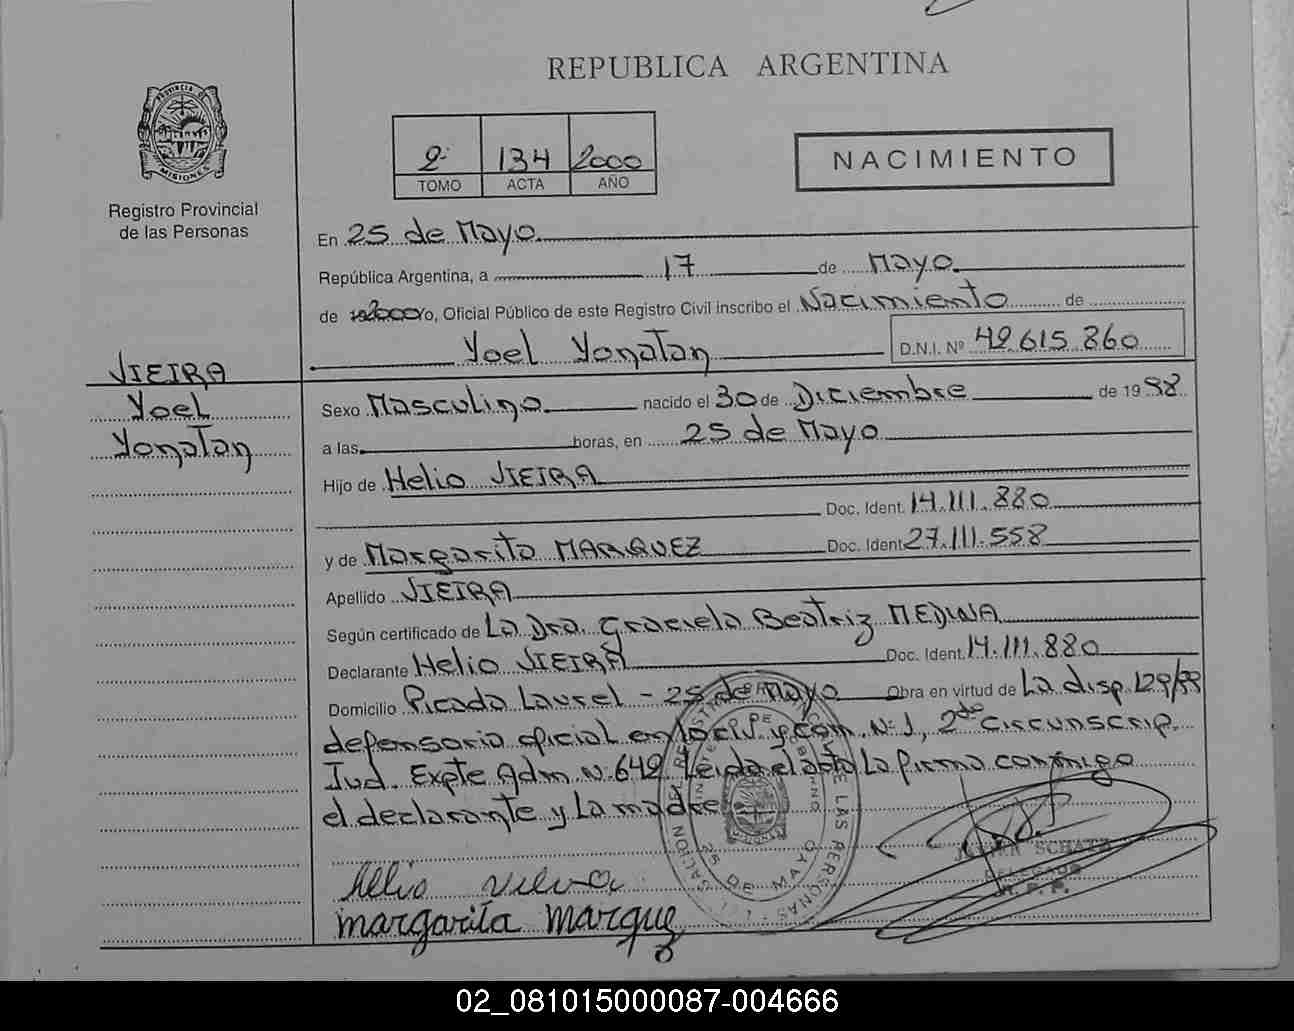 REPUBLICA ARGENTINA
PROVINCIA DE
MISIONES
Registro Provincial
de las Personas
2º 134 2000
TOMO ACTA AÑO
NACIMIENTO
En 25 de Mayo
República Argentina, a 17 de Mayo
de 2000 yo, Oficial Público de este Registro Civil inscribo el Nacimiento de
Yoel Yonatan D.N.I. Nº 42.615.860
VIEIRA
Yoel
Yonatan
Sexo Masculino nacido el 30 de Diciembre de 1998
a las horas, en 25 de Mayo
Hijo de Helio VIEIRA
Doc. Ident. 14.111.880
y de Margarita MARQUEZ Doc. Ident 27.111.558
Apellido VIEIRA
Según certificado de La Dra. Graciela Beatriz MEDINA
Declarante Helio VIEIRA Doc. Ident. 14.111.880
Domicilio Picada Laurel - 25 de Mayo Obra en virtud de La disp. 129/99
defensoria oficial en lo civ. y com. Nº 1, 2da circunscrip.
Jud. Expte Adm. Nº 642 Leida el acta La firma conmigo
el declarante y La madre
Helio Vieira
margarita marquez
SCHATZ
DELEGADO
R. P. P.
LAS PERSONAS
25 DE MAYO
02_081015000087-004666